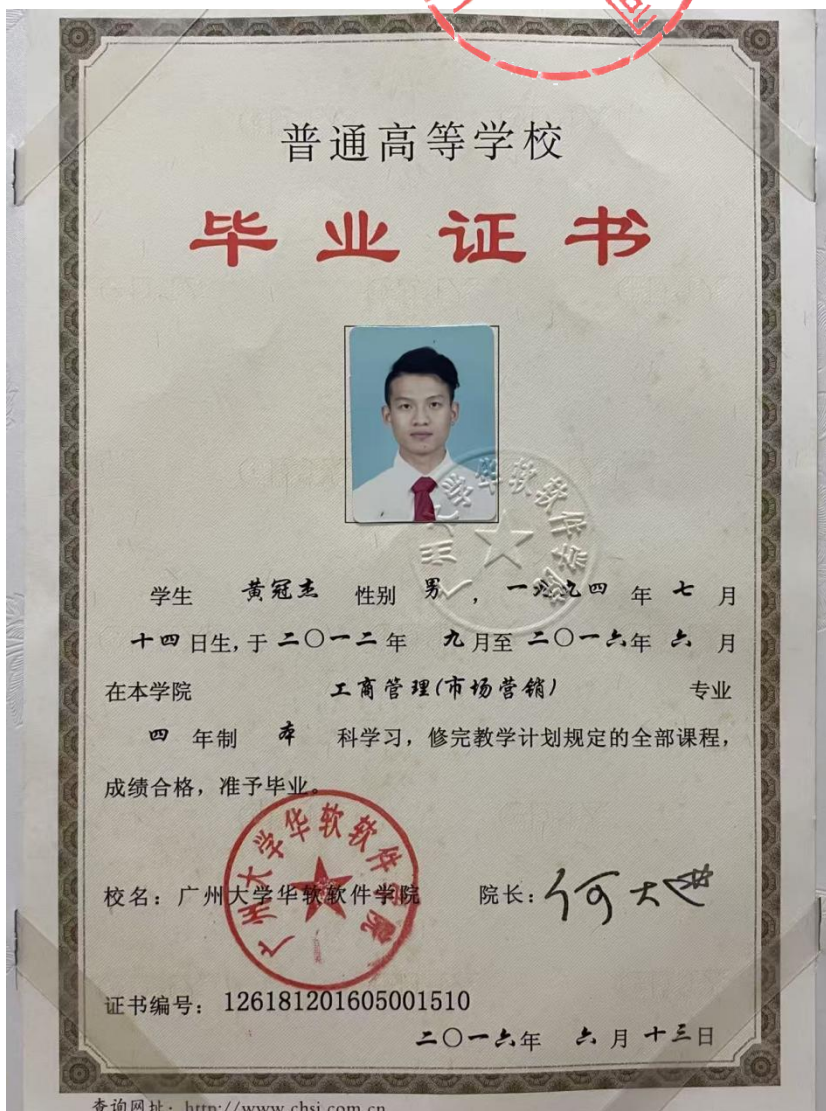 普通高等学校
毕业证书
学生 黄冠杰 性别 男 ，一九九四 年 七 月
十四 日生，于 二〇一二 年 九 月至 二〇一六年 六 月
在本学院 工商管理(市场营销) 专业
四 年制 本 科学习，修完教学计划规定的全部课程，
成绩合格，准予毕业。
广州大学华软软件学院
校名：广州大学华软软件学院 院长：何大进
证书编号：126181201605001510
二〇一六年 六 月 十三 日
查询网址：http://www.chsi.com.cn